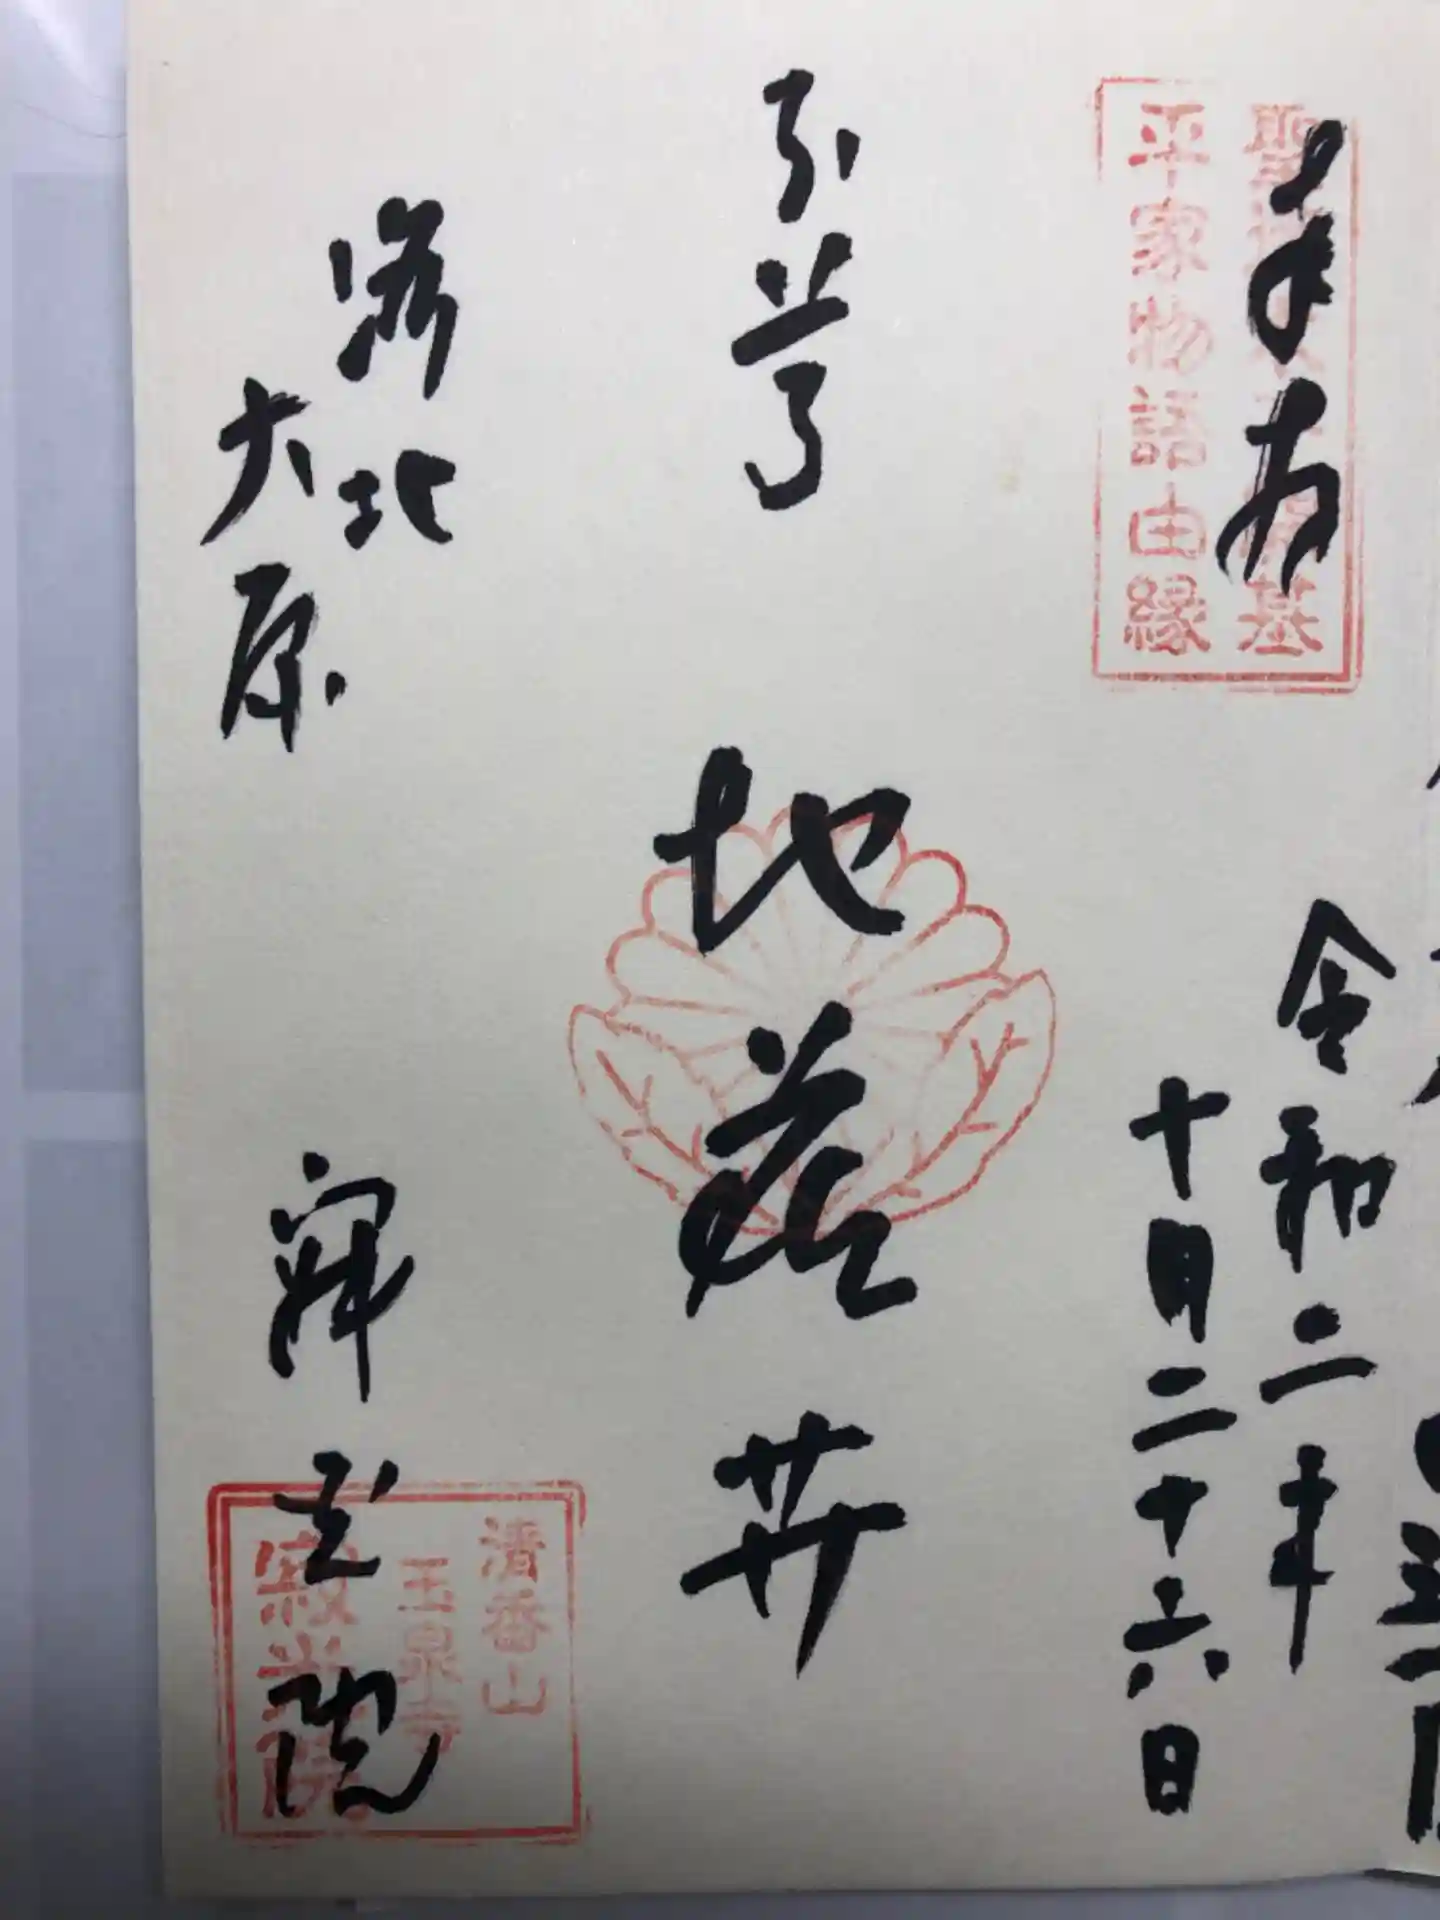 奉拝
聖徳太子開基
平家物語由縁
令和二年
十月二十六日
本尊
地蔵𦬇
洛北
大原
寂光院
清香山
玉泉寺
寂光院